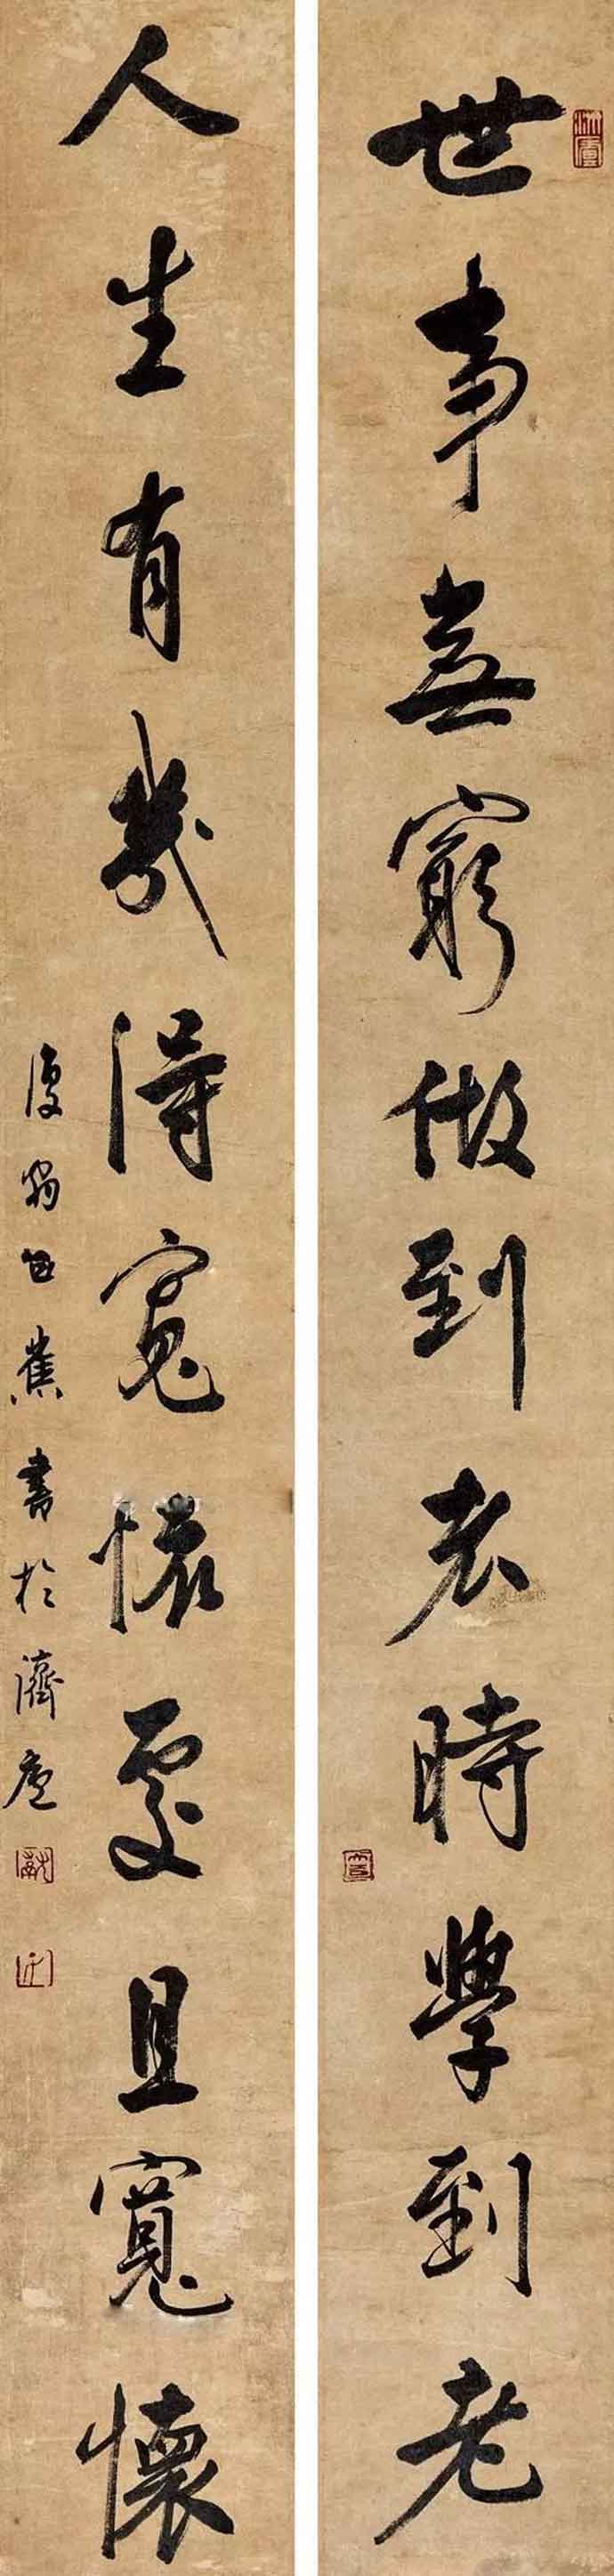 世事無窮做到老時學到老
人生有幾得寬懷處且寬懷
復翁白蕉書於濟廬